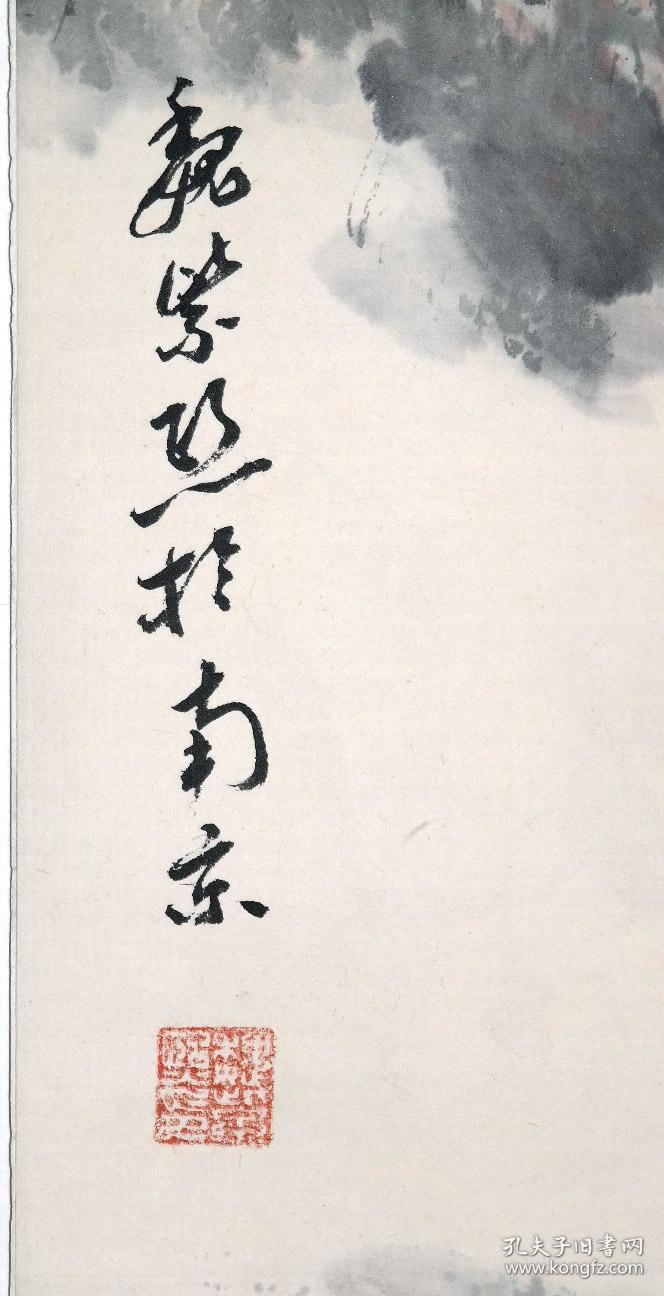 魏紫熙於南京
孔夫子旧書网
www.kongfz.com